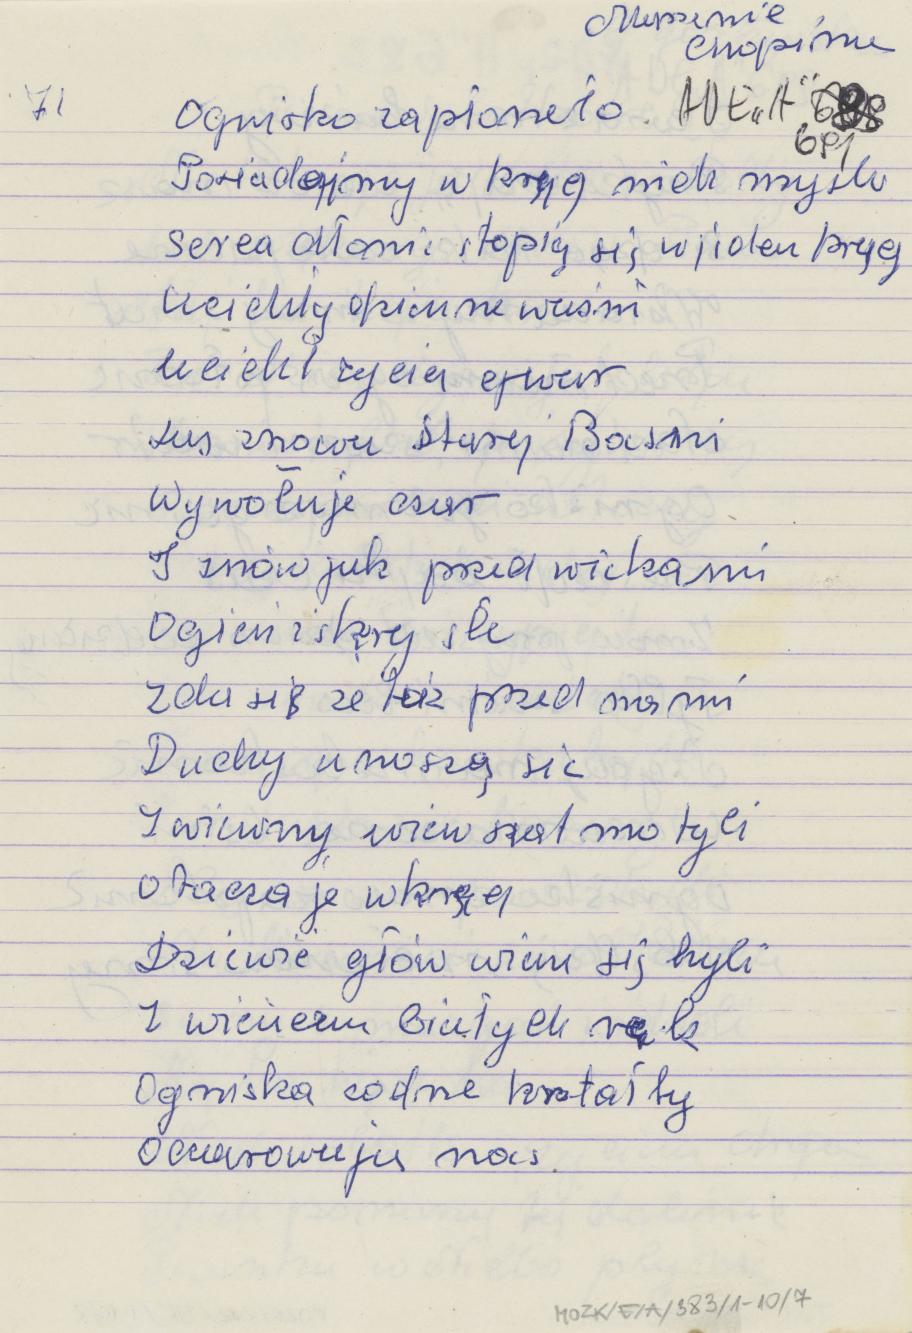 Marzenie
Chopina
71 Ognisko zapłoneło. ADE„A"
691
Posiadajmy w kręg niech myśli
serca dłonie stopią się w jeden kręg
Ucichły dzienne waśni
Ucichł życia gwar
Las znowu Starej Baśni
Wywołuje czar
I znów jak przed wiekami
Ogień iskry śle
zda się że tuż przed nami
Duchy unoszą sie
I wiewny wiew szat motyli
otacza je wkręg
Dziewic głów wieu się hyli
I wieńcem białych rąk
Ogniska codne kształty
Oczarowują nas.
MOZK/E/A/383/1-10/7